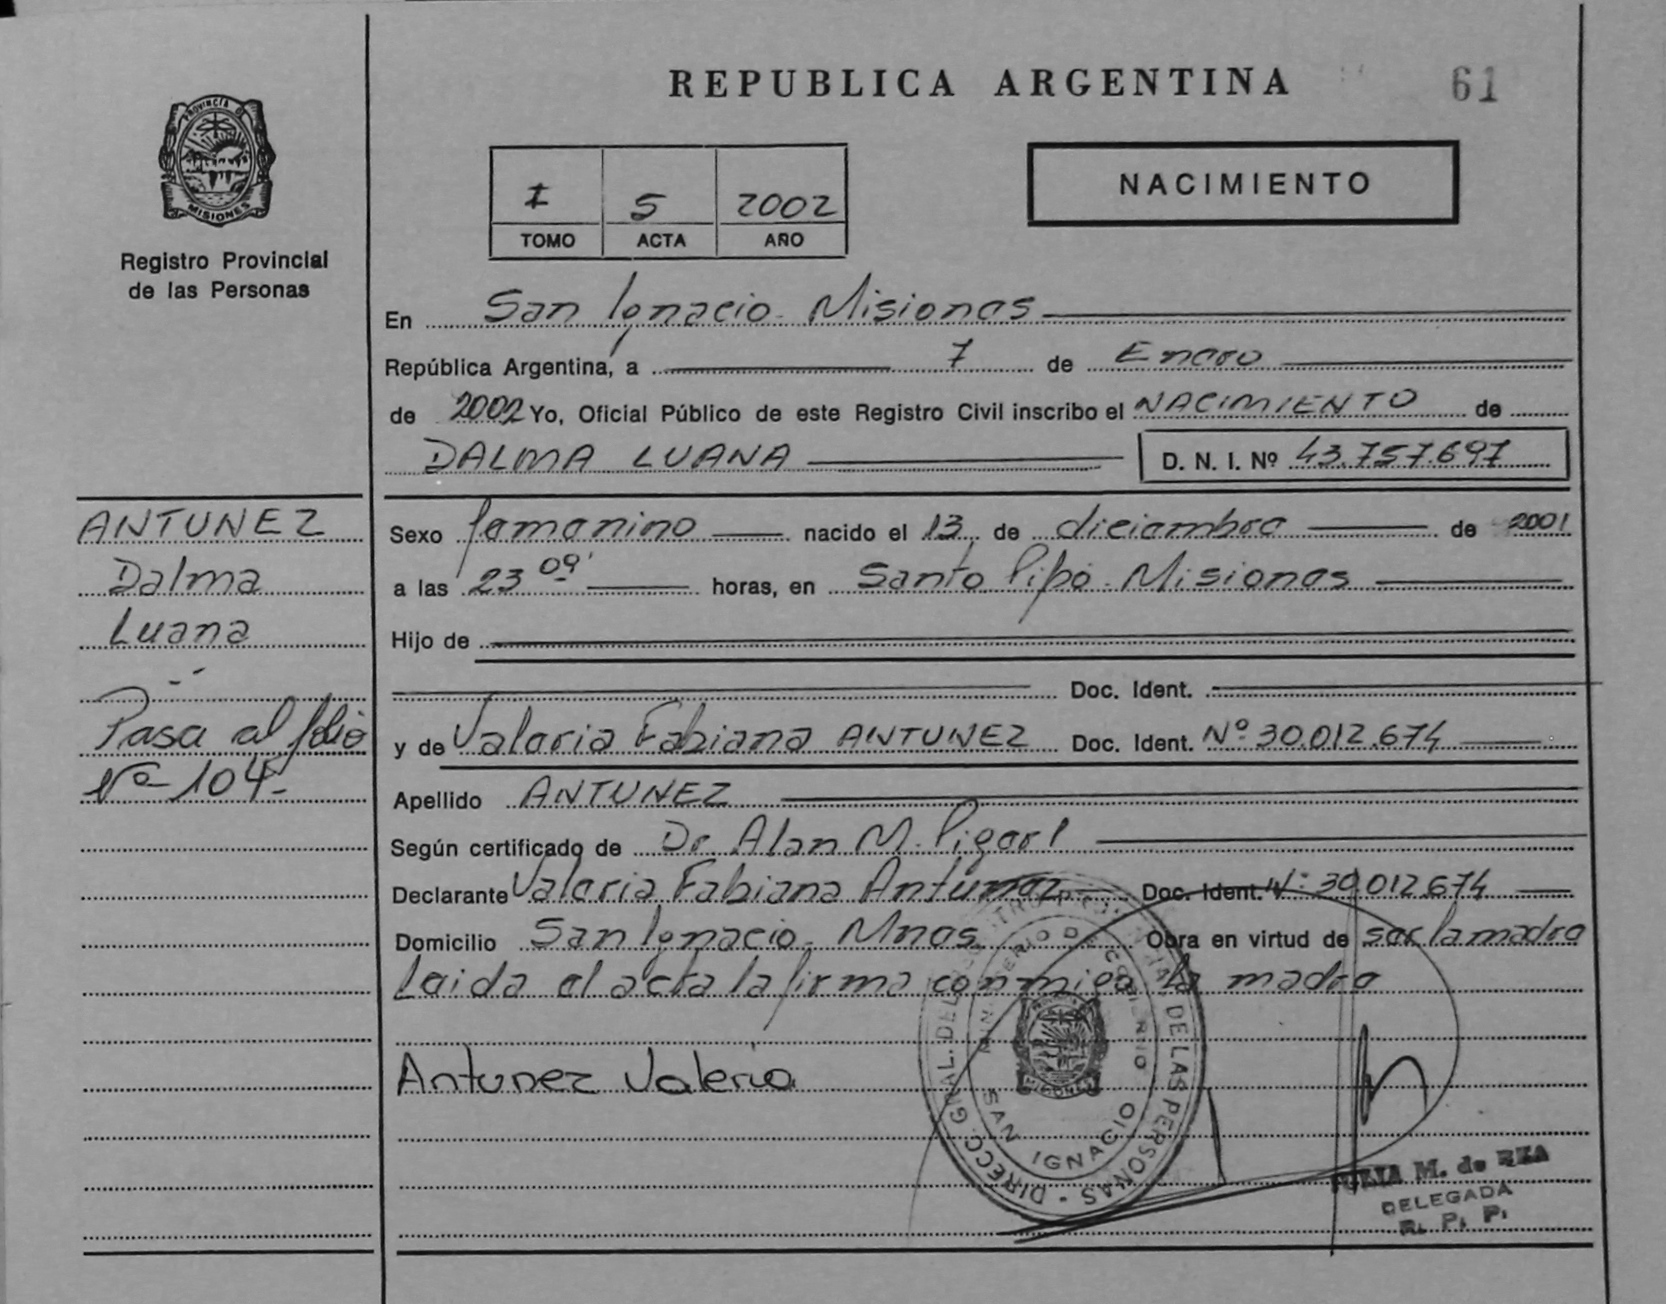 REPUBLICA ARGENTINA
61
PROVINCIA DE
MISIONES
Registro Provincial
de las Personas
I 5 2002
TOMO ACTA AÑO
NACIMIENTO
En San Ignacio - Misiones
República Argentina, a 7 de Enero
de 2002 Yo, Oficial Público de este Registro Civil inscribo el NACIMIENTO de
DALMA LUANA D. N. I. Nº 43.757.697
ANTUNEZ
Dalma
Luana
Pasa al folio
Nº 104-
Sexo femenino nacido el 13 de diciembre de 2001
a las 23 09' horas, en Santo Pipó - Misiones
Hijo de
Doc. Ident.
y de Valeria Fabiana ANTUNEZ Doc. Ident. Nº 30.012.674
Apellido ANTUNEZ
Según certificado de Dr. Alan M.
Declarante Valeria Fabiana Antunez Doc. Ident. Nº 30.012.674
Domicilio San Ignacio - Mnes Obra en virtud de ser la madre
Leida el acta la firma conmigo la madre
Antunez Valeria
DIRECC. GRAL. DEL REGISTRO PROVINCIAL DE LAS PERSONAS
MINISTERIO DE GOBIERNO
SAN IGNACIO
M. de REA
DELEGADA
R. P. P.